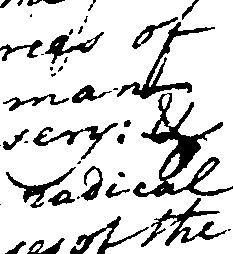 rees of
mank
sery: &
radical
ses of the